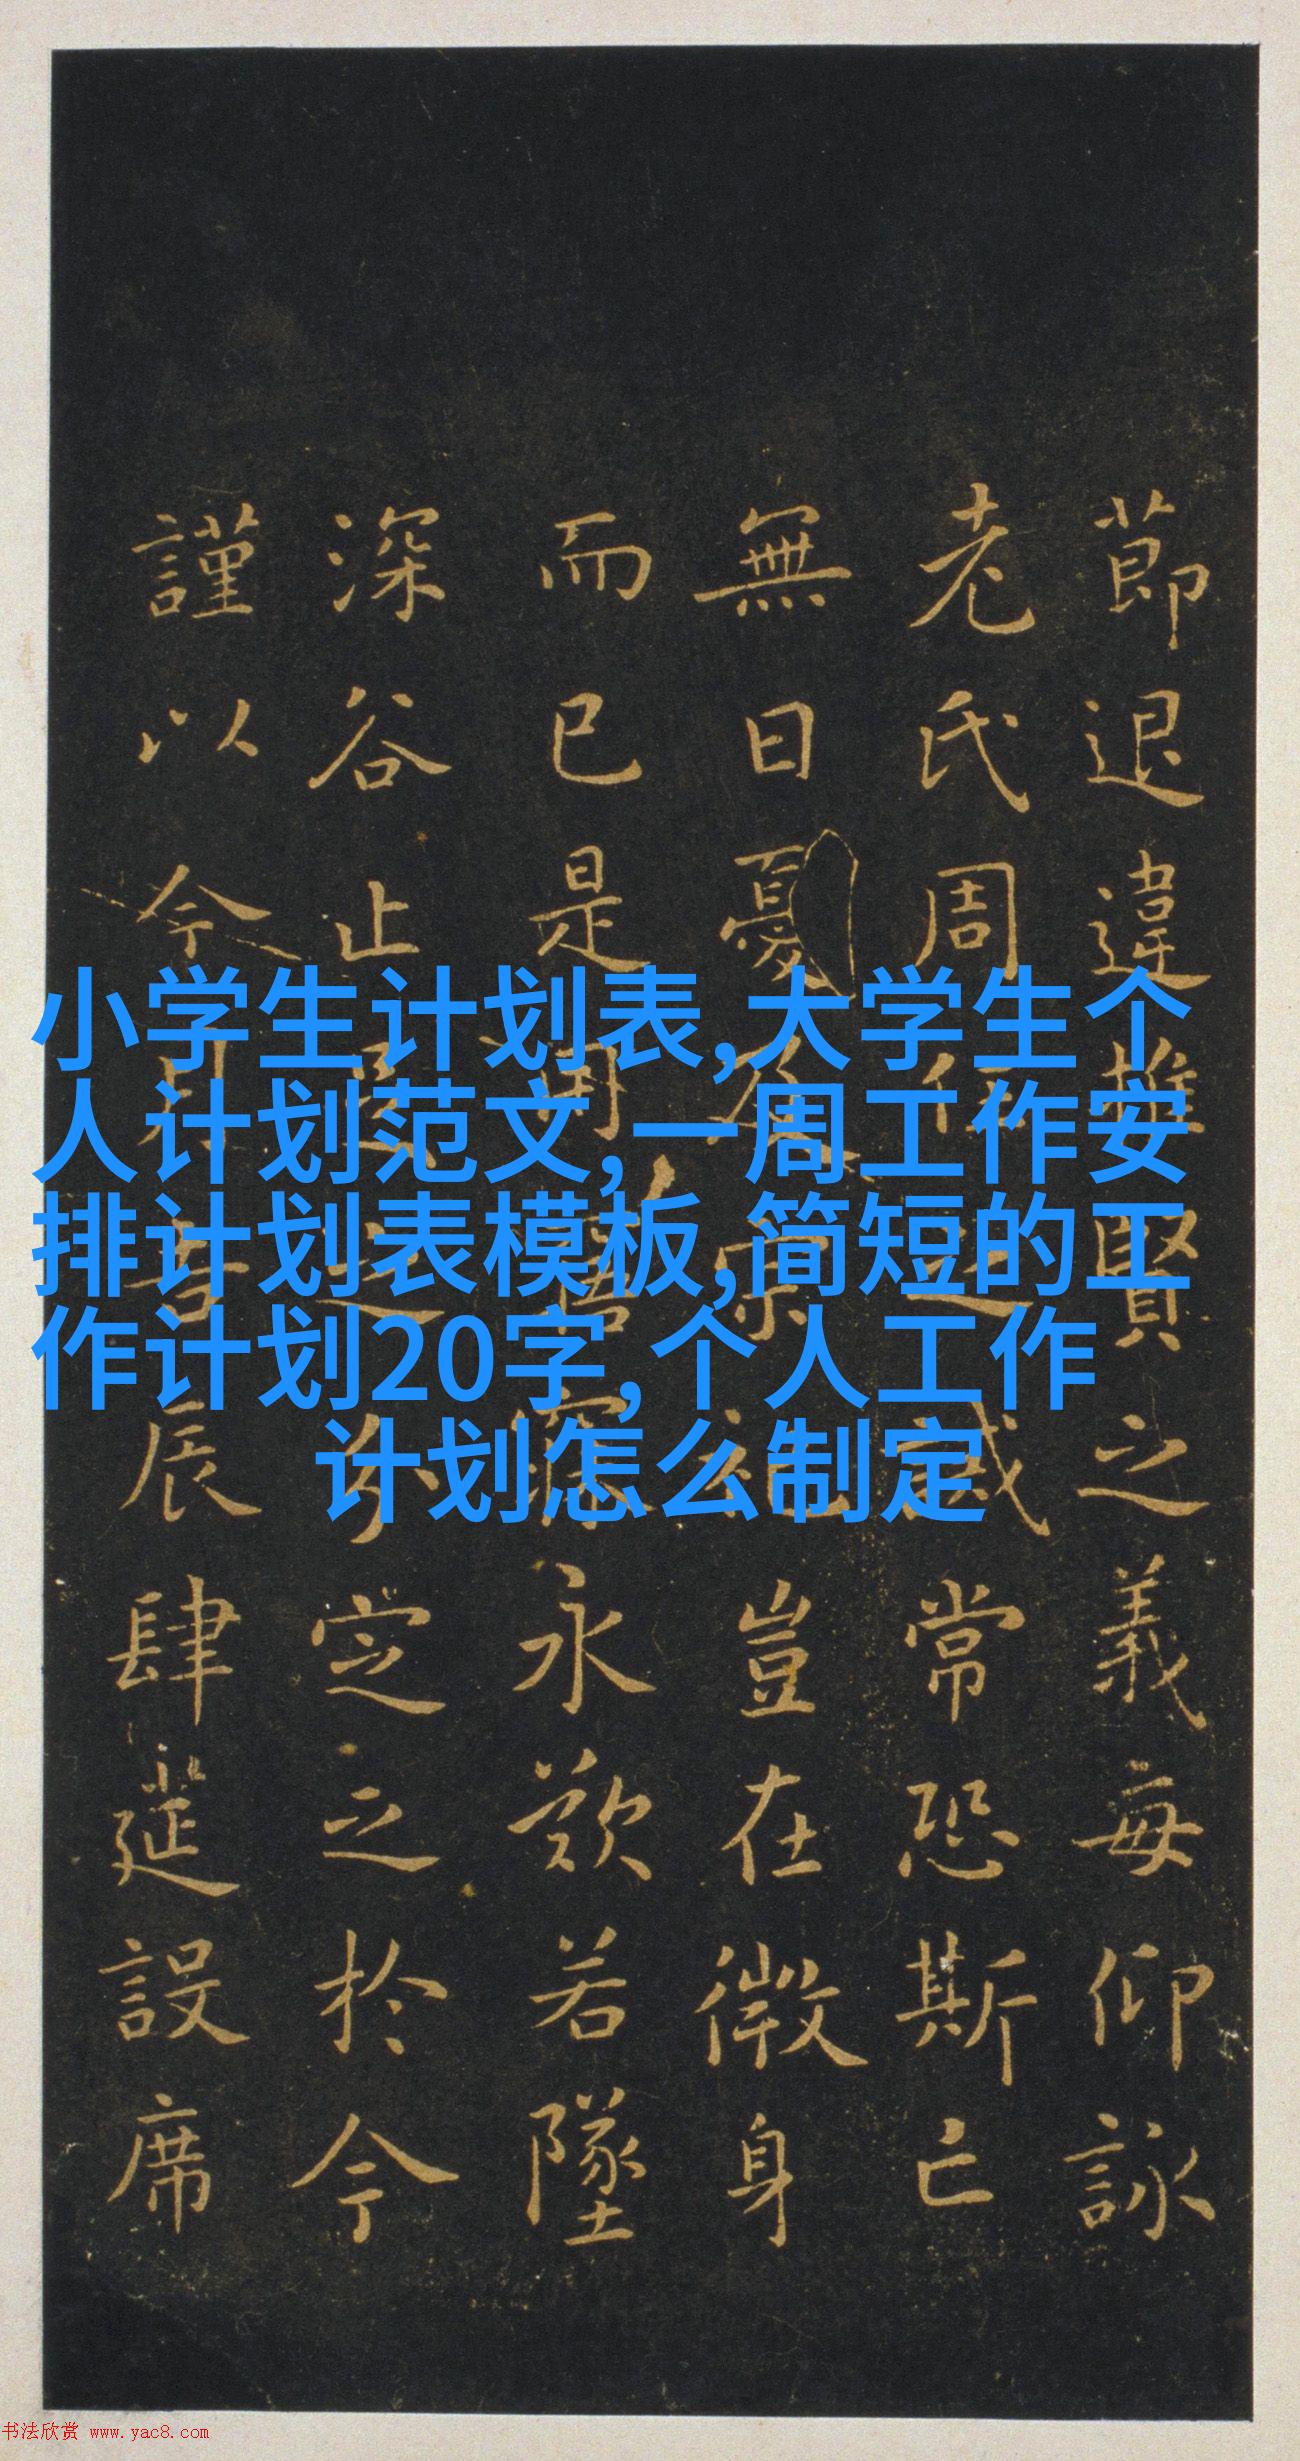 節退違推賢之義每仰詠
老氏周任之誡常恐斯亡
無日憂及宗祀豈在微身
而已是用寤寐永歎若墜
深谷止足之分定之於今
謹以今月吉辰肆筵設席
小学生计划表,大学生个
人计划范文,一周工作安
排计划表模板,简短的工
作计划20字,个人工作
计划怎么制定
书法欣赏 www.yac8.com